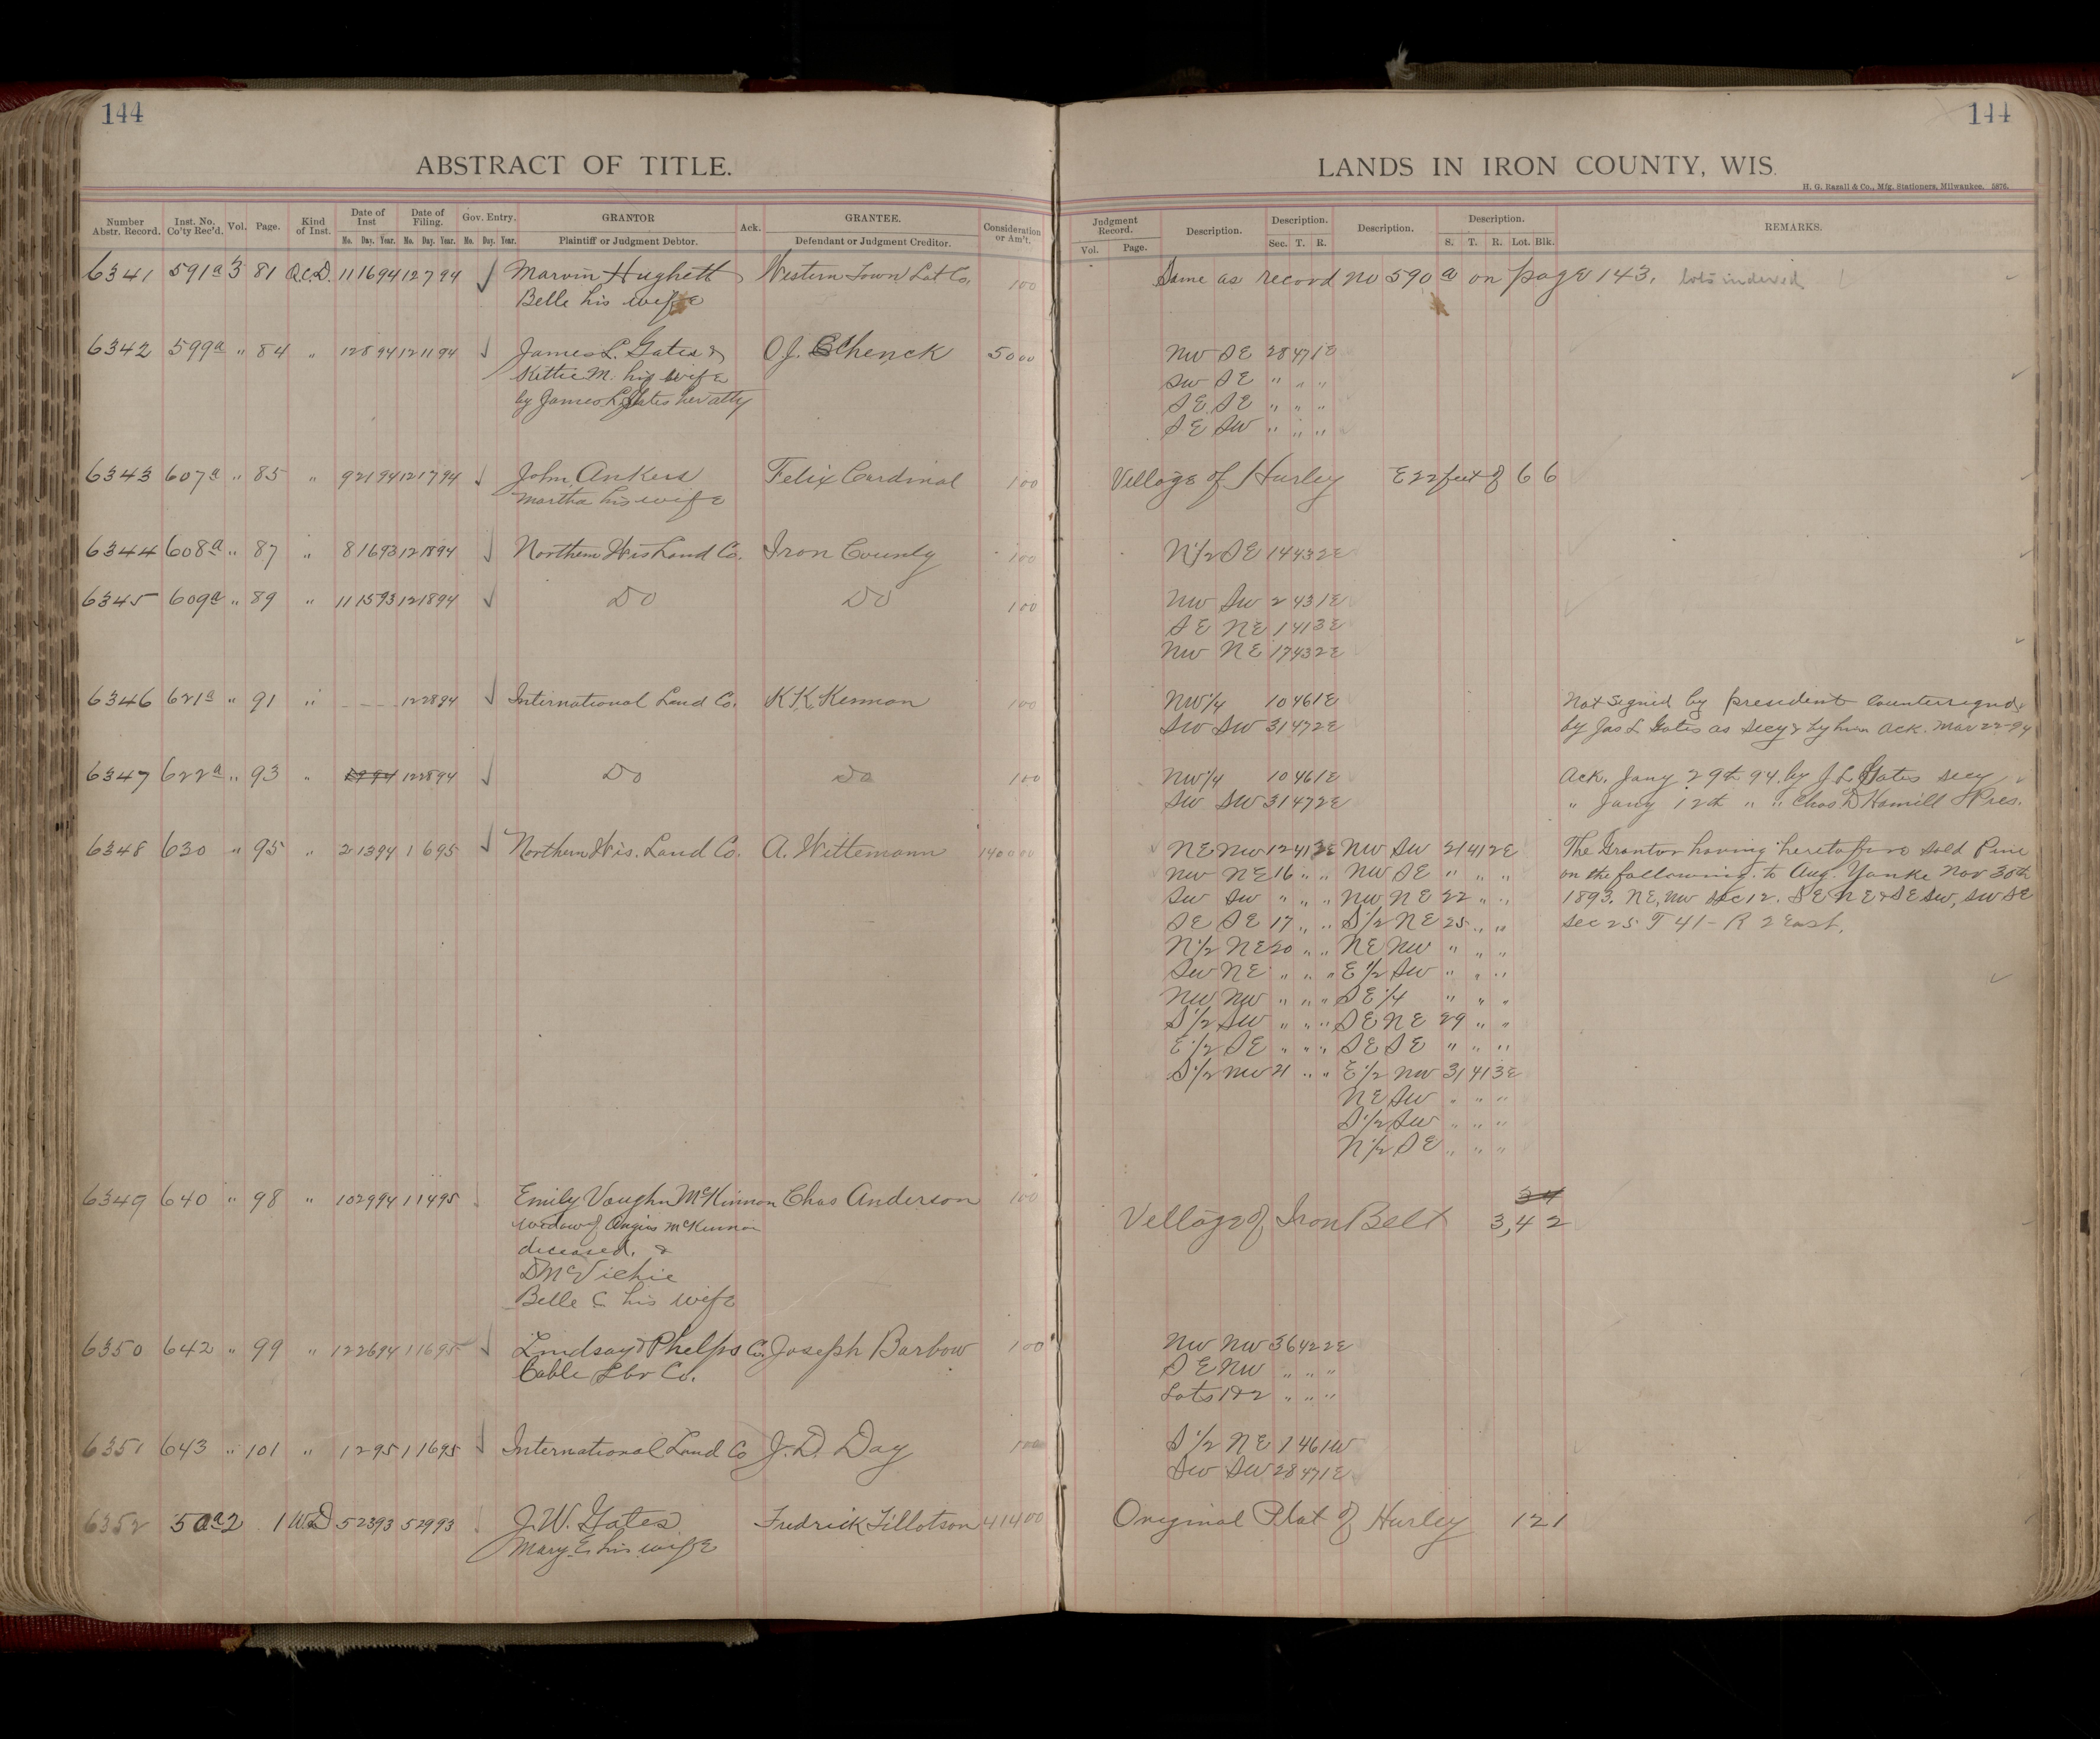 144
144
ABSTRACT OF TITLE.
LANDS IN IRON COUNTY, WIS.
H. G. Razall & Co., Mfg. Stationers, Milwaukee. 5876.
Number Abstr. Record. Inst. No. Co'ty Rec'd. Vol. Page. Kind of Inst. Date of Inst Mo. Day. Year. Date of Filing. Mo. Day. Year. Gov. Entry. Mo. Day. Year. GRANTOR Plaintiff or Judgment Debtor. Ack. GRANTEE. Defendant or Judgment Creditor. Consideration or Am't. Judgment Record. Vol. Page. Description. Description. Sec. T. R. Description. Description. S. T. R. Lot. Blk. REMARKS.
6341 591a 3 81 Q.C.D. 11 16 94 12 7 94 Marvin Hughett Western Town Lot Co. 1 00 Same as record No 590 a on page 143. lots indexed
Belle his wife
6342 599a " 84 " 12 8 94 12 11 94 James L. Gates & O.J. Schenck 50 00 NW SE 28 47 1E
Kittie M. his wife SW SE " " "
by James L Gates her atty SE SE " " "
SE SW " " "
6343 607a " 85 " 9 21 94 12 17 94 John Ankers Felix Cardinal 1 00 Village of Hurley E 22 feet of 6 6
Martha his wife
6344 608a " 87 " 8 16 93 12 18 94 Northern Wis Land Co. Iron County 1 00 N1/2 SE 14 43 2E
6345 609a " 89 " 11 15 93 12 18 94 Do Do 1 00 NW SW 2 43 1E
SE NE 1 41 3E
NW NE 17 43 2E
6346 621a " 91 " - - - 12 28 94 International Land Co. K.K. Kennan 1 00 NW1/4 10 46 1E Not signed by president Countersigned
SW SW 31 47 2E by Jas L Gates as Secy & by him Ack. Mar 22-94
6347 622a " 93 " 12 28 94 Do Do 1 00 NW1/4 10 46 1E Ack. Jany 29th 94 by J L Gates secy
SW SW 31 47 2E " Jany 12th " " Chas D Hamill Pres.
6348 630 " 95 " 2 13 94 1 6 95 Northern Wis. Land Co. A. Wittemann 1400 00 NE NW 12 41 2E NW SW 21 41 2E The Grantor having heretofore sold Pine
NW NE 16 " " NW SE " " " on the following. to Aug. Yanke Nov 30th
SW SW " " " NW NE 22 " " 1893. NE, NW Sec 12. SE NE & SE SW, SW SE
SE SE 17 " " S1/2 NE 25 " " Sec 25 T 41 - R 2 East.
N1/2 NE 20 " " NE NW " " "
SW NE " " " E1/2 SW " " "
NW NW " " " SE1/4 " " "
S1/2 SW " " " SE NE 29 " "
E1/2 SE " " " SE SE " " "
S1/2 NW 21 " " E1/2 NW 31 41 3E
NE SW " " "
S1/2 SW " " "
N1/2 SE " " "
6349 640 " 98 " 10 29 94 1 14 95 Emily Vaughn McKinnon Chas Anderson 1 00 3 4
widow of Angus McKinnon Village of Iron Belt 3,4 2
deceased. &
D McVichie
Belle C his wife
6350 642 " 99 " 12 26 94 1 16 95 Lindsay & Phelps Co. Joseph Barbow 1 00 NW NW 36 42 2E
Cable Lbr Co. SE NW " " "
Lots 1 & 2 " " "
6351 643 " 101 " 1 2 95 1 16 95 International Land Co J. D. Day 1 00 S1/2 NE 1 46 1W
SW SW 28 47 1E
6352 50a 2 1 W.D 5 23 93 5 29 93 J.W. Gates Fredrick Tillotson 414 00 Original Plat of Hurley 12 1
Mary E his wife